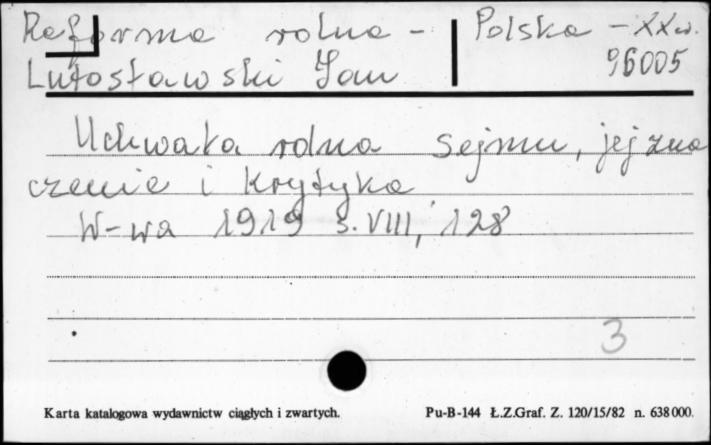 Reforma rolna - Polska - XX w.
Lutosławski Jan 96005
Uchwała rolna sejmu, jej zna
czenie i krytyka
W-wa 1919 s. VIII, 128
3
Karta katalogowa wydawnictw ciągłych i zwartych. Pu-B-144 Ł.Z.Graf. Z. 120/15/82 n. 638000.